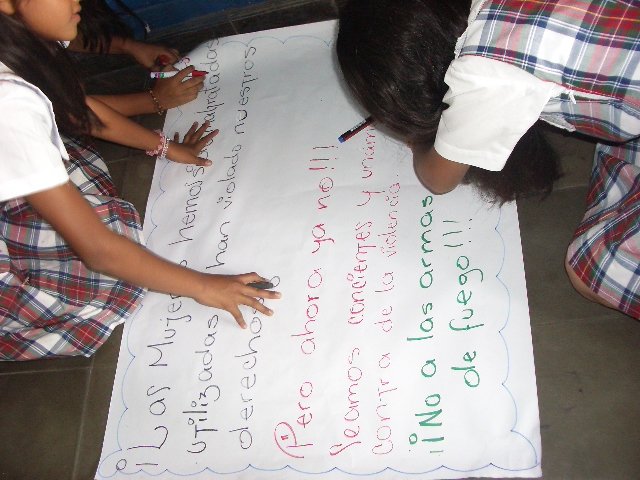 ¡Las Mujeres hemos maltratadas
utilizadas han violado nuestros
derechos
Pero ahora ya no!!!
Seamos concientes y unam
contra de la violencia.
¡¡No a las armas
de fuego!!!